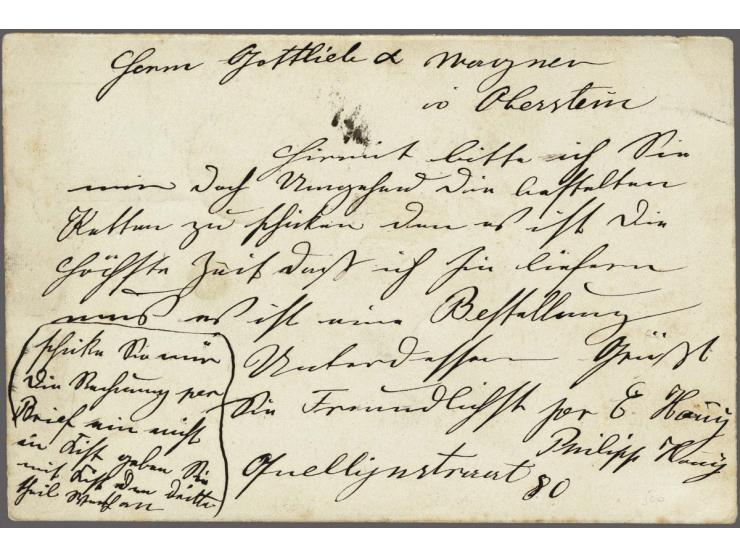 Herrn Gottlieb & Wagner
in Oberstein
Hiermit bitte ich Sie
mir doch Umgehend die bestelten
Ketten zu schicken den es ist die
höchste Zeit daß ich sie liefern
muß es ist eine Bestellung
Unterdessen Grüßt
Sie Freundlichst per E. König
Philipp König
Quellijnstraat 80
schicke Sie mir
die Rechnung per
Brief ein nicht
in Kist geben Sie
mit Kist den dritte
theil